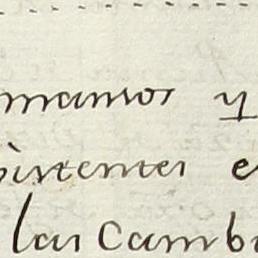 manos y
istentes e
las Camb